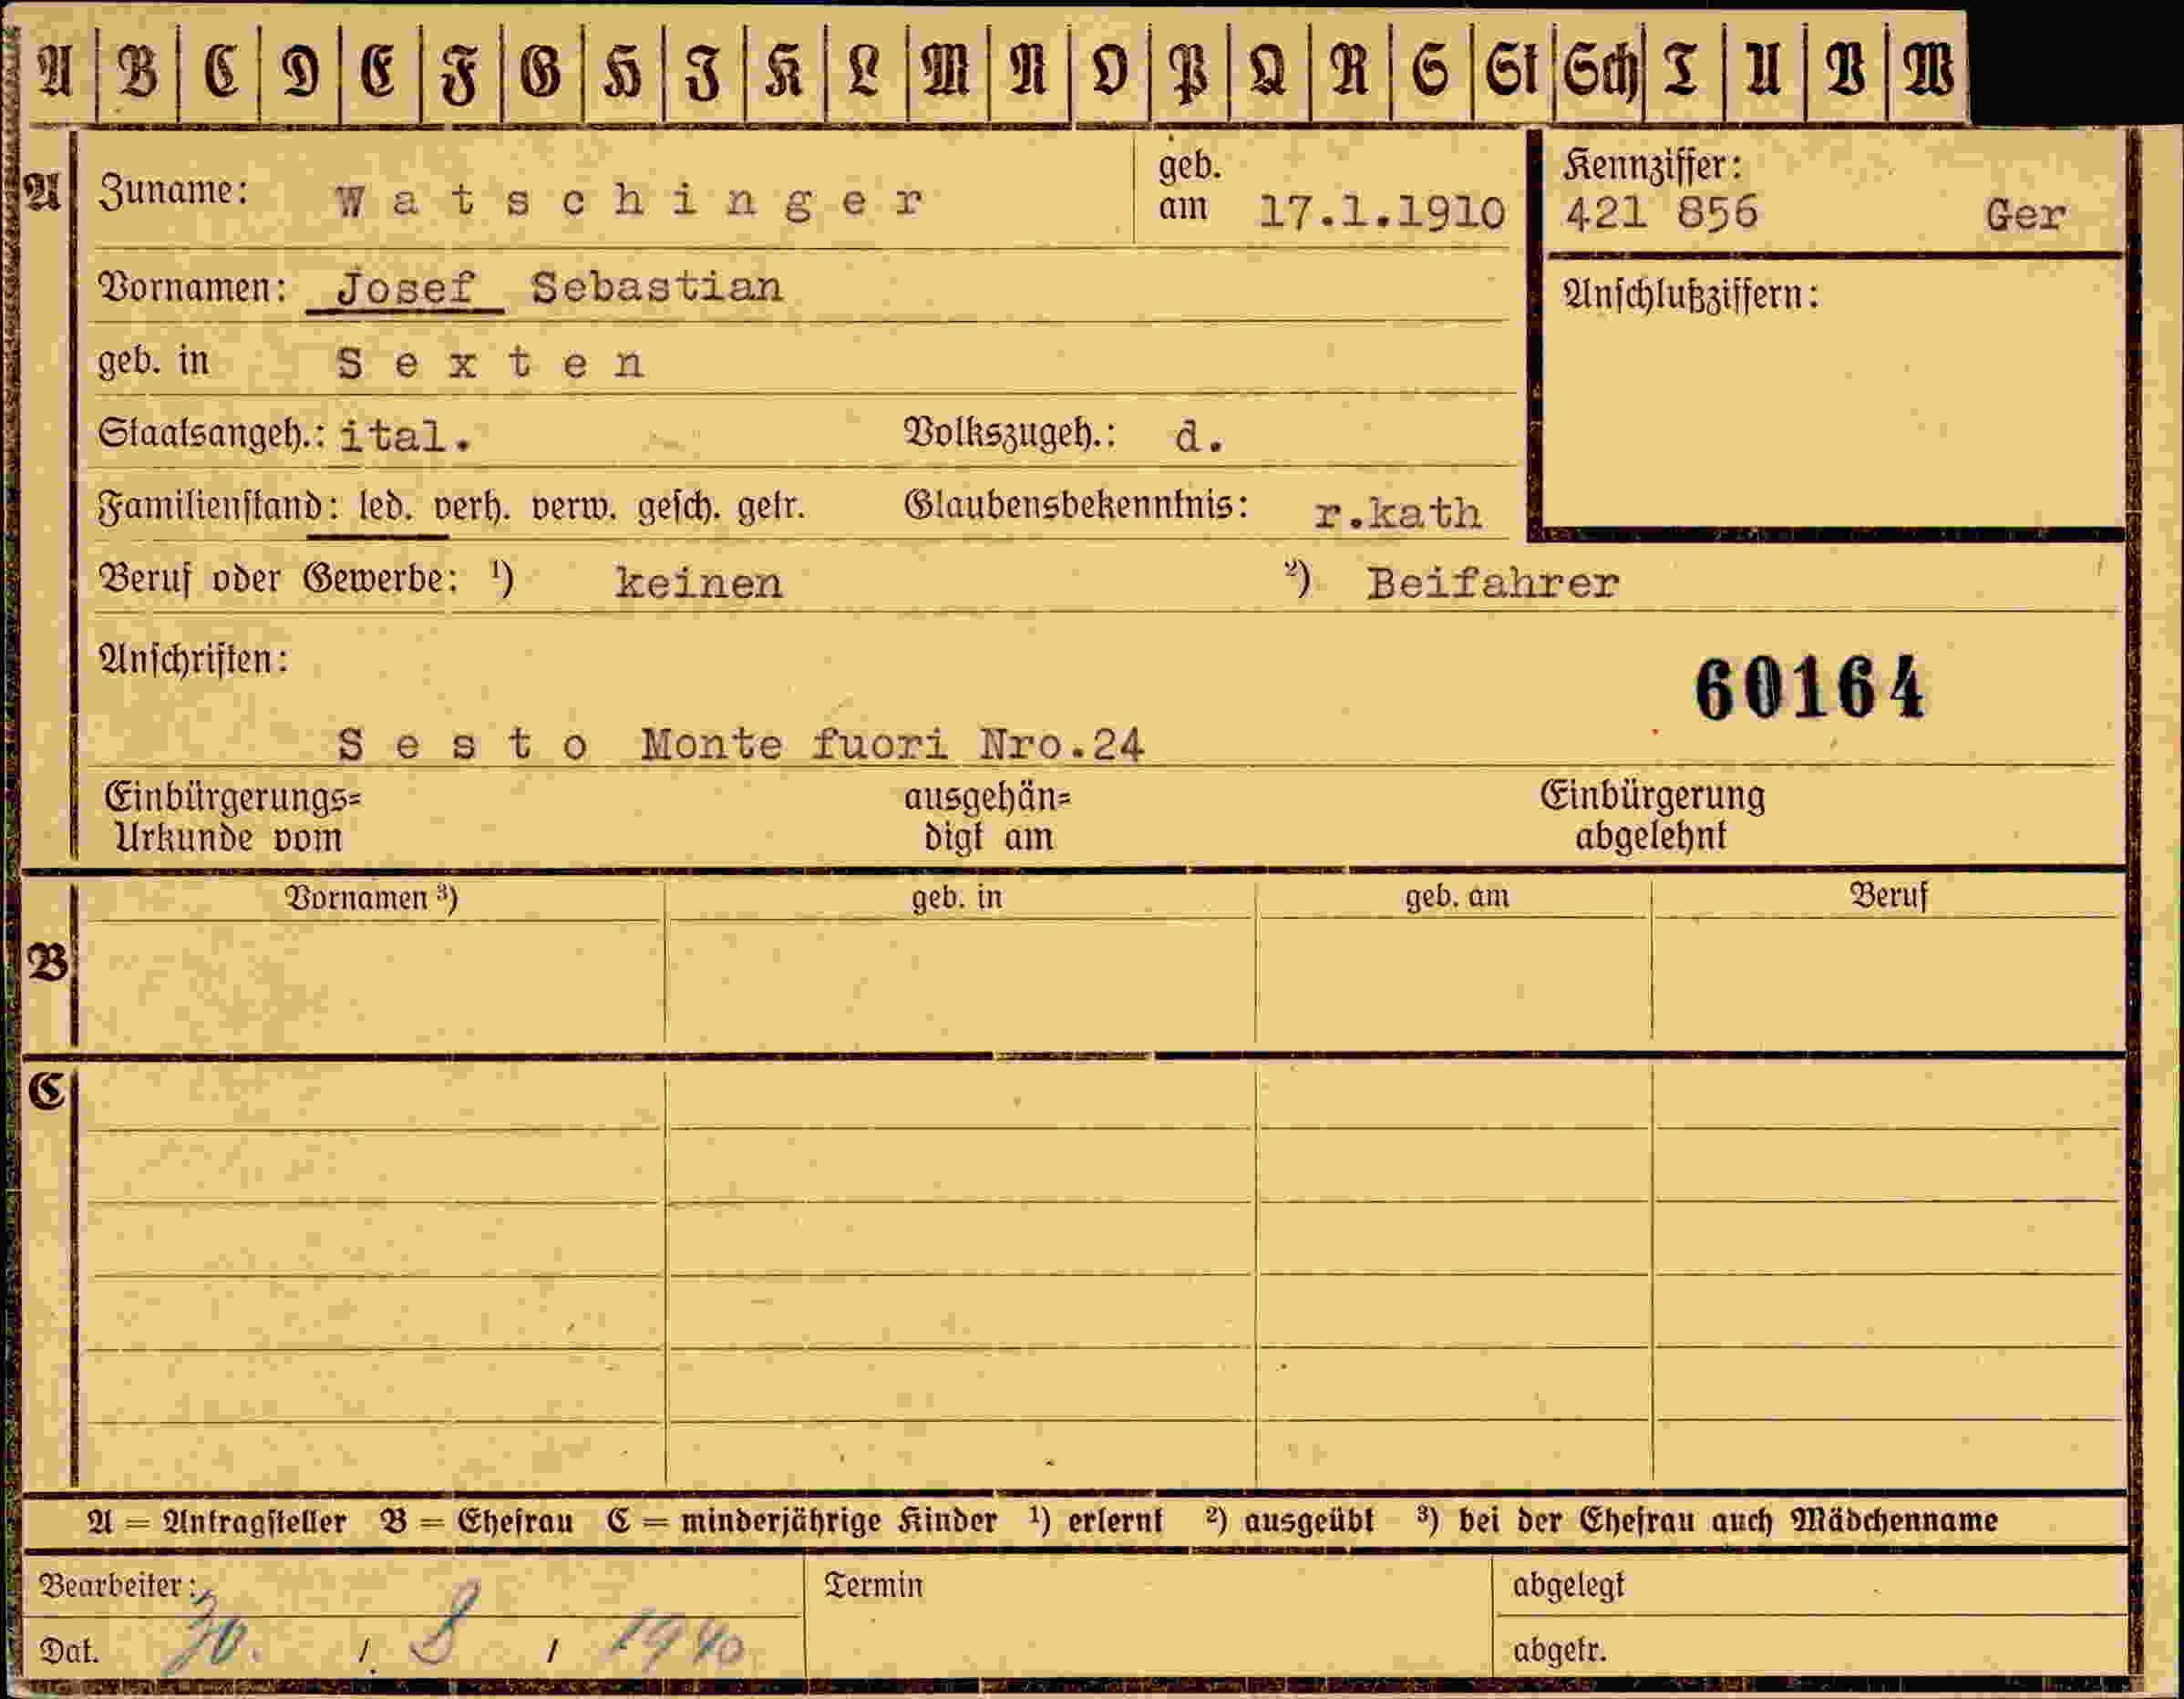 A B C D E F G H J K L M N O P Q R S St Sch T U V W
A Zuname: Watschinger geb. am 17.1.1910
Kennziffer: 421 856 Ger
Vornamen: Josef Sebastian
Anschlußziffern:
geb. in Sexten
Staatsangeh.: ital. Volkszugeh.: d.
Familienstand: led. verh. verw. gesch. getr. Glaubensbekenntnis: r.kath
Beruf oder Gewerbe: ¹) keinen ²) Beifahrer
Anschriften:
60164
Sesto Monte fuori Nro.24
Einbürgerungs= ausgehän= Einbürgerung
Urkunde vom digt am abgelehnt
Vornamen ³) geb. in geb. am Beruf
B
C
A = Antragsteller B = Ehefrau C = minderjährige Kinder ¹) erlernt ²) ausgeübt ³) bei der Ehefrau auch Mädchenname
Bearbeiter: Termin abgelegt
Dat. 30. / 8 / 1940 abgetr.